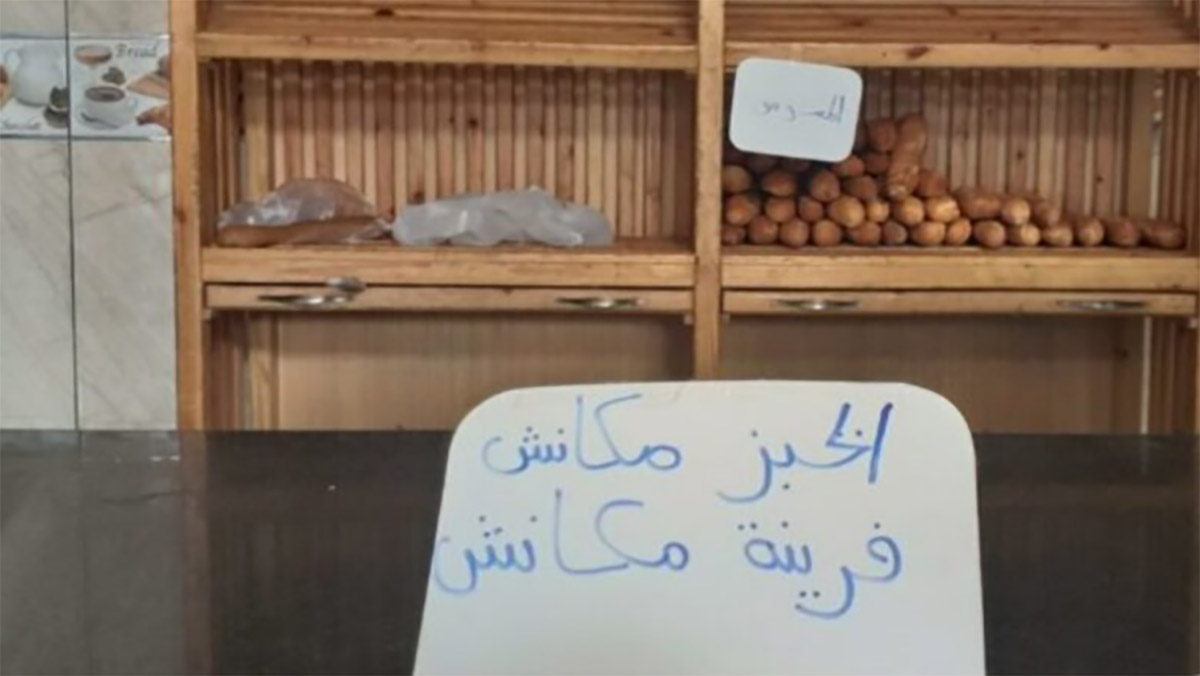 Bread
الخبز مكانش
فرينة مكانش